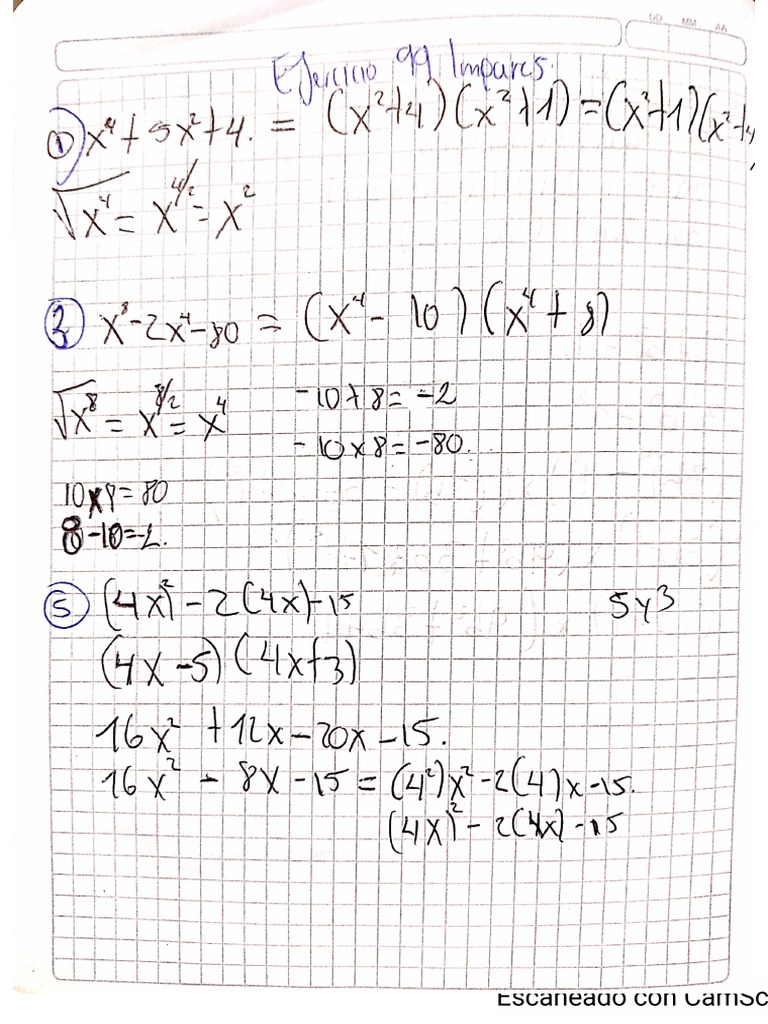 DD MM AA
Ejercicio 99 Impares.
① x⁴ + 5x² + 4. = (x²+4)(x²+1) = (x²+1)(x²+4
√x⁴ = x^4/2 = x²
3 x⁸ - 2x⁴ - 80 = (x⁴ - 10)(x⁴ + 8)
√x⁸ = x^8/2 = x⁴ -10+8 = -2
-10×8 = -80.
10×8=80
8-10=-2.
⑤ (4x)² - 2(4x) - 15 5 y 3
(4x - 5)(4x+3)
16x² + 12x - 20x - 15.
16x² - 8x - 15 = (4²)x² - 2(4)x - 15.
(4x)² - 2(4x) - 15
Escaneado con CamSc